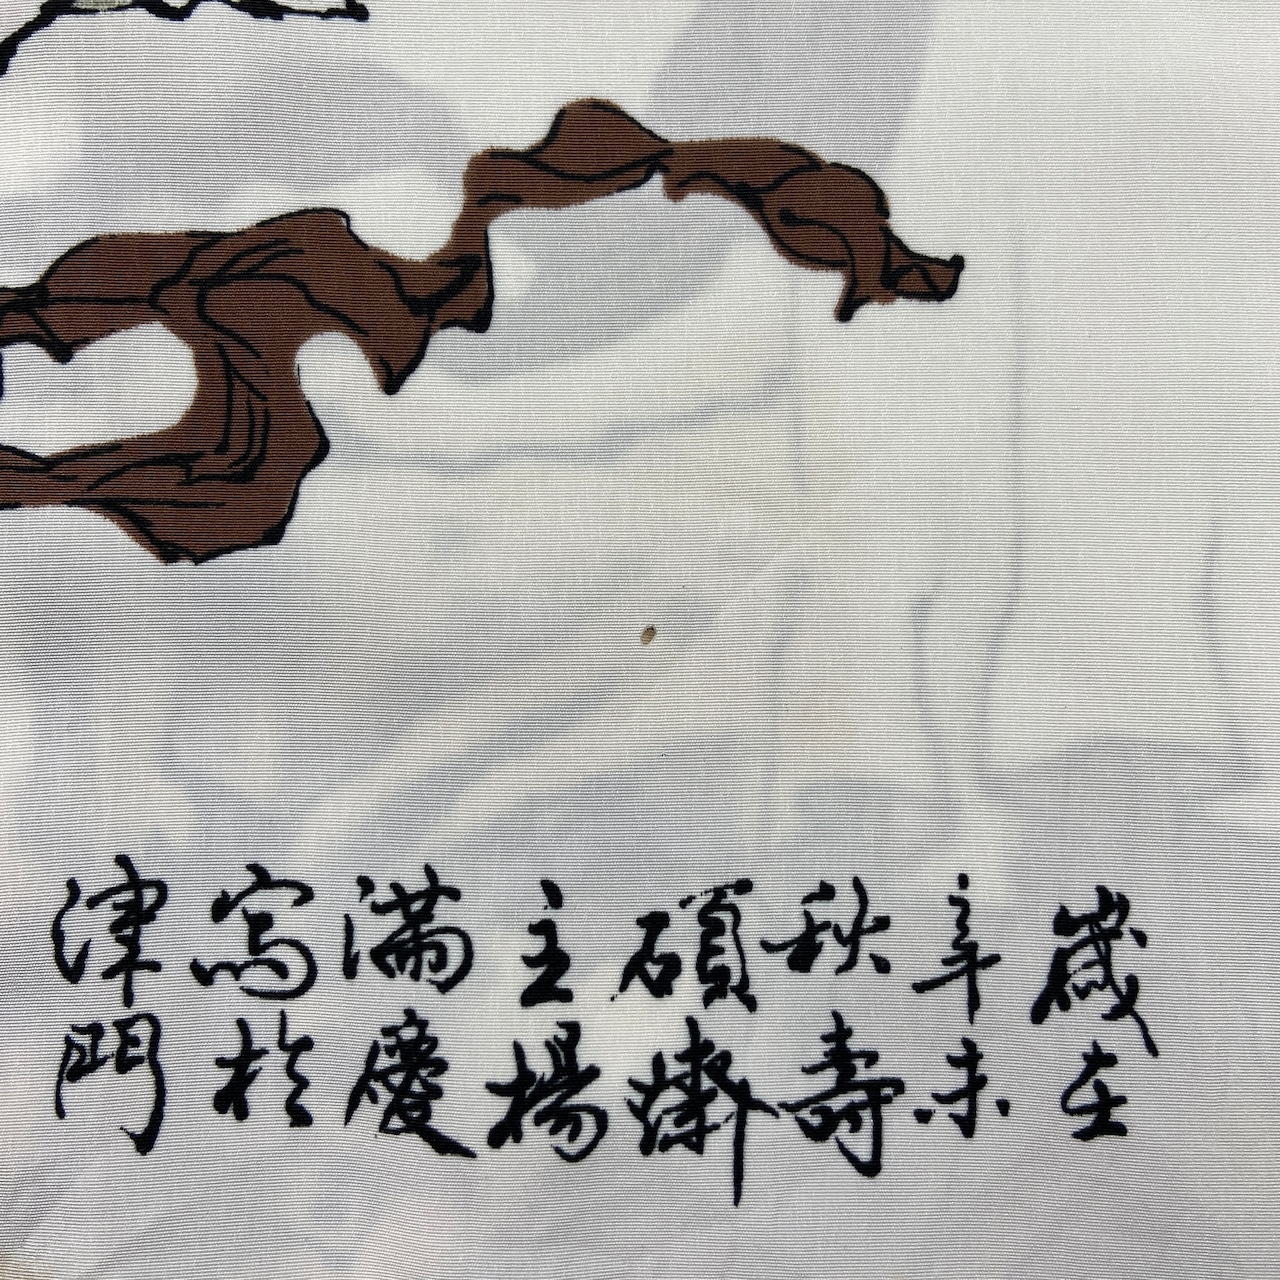 歲在
辛未
秋壽
碩燦
主楊
滿慶
寫於
津門